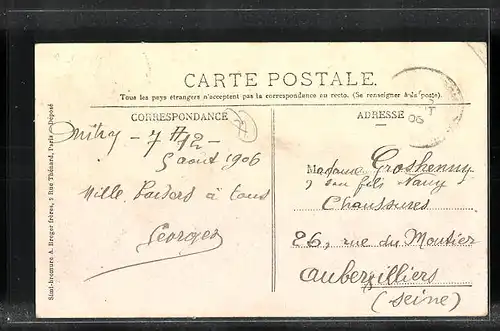 CARTE POSTALE.
Tous les pays étrangers n'acceptent pas la correspondance au recto. (Se renseigner à la poste).
CORRESPONDANCE
Mitry - 7 H 12 -
5 aout 1906
Mille Baisers à tous
Georges
ADRESSE
Madame Groshenny
son fils
Chaussures
26, rue du Moutier
Aubervilliers
(Seine)
06
Simil-bromure A. Breger frères, 9 Rue Thénard, Paris - Déposé